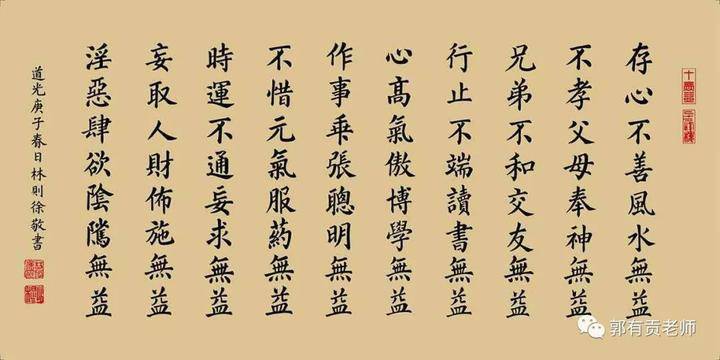 存心不善風水無益
不孝父母奉神無益
兄弟不和交友無益
行止不端讀書無益
心髙氣傲博學無益
作事乖張聰明無益
不惜元氣服葯無益
時運不通妄求無益
妄取人財佈施無益
淫惡肆欲陰騭無益
道光庚子春日林則徐敬書
郭有贡老师